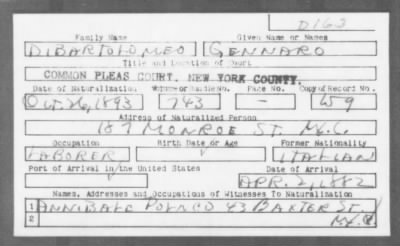 D163
Family Name Given Name or Names
DIBARTOLOMEO GENNARO
Title and Location of Court
COMMON PLEAS COURT, NEW YORK COUNTY.
Date of Naturalization Volume or Bundle No. Page No. Copy of Record No.
Oct. 26, 1893 743 - 59
Address of Naturalized Person
187 MONROE ST. N.Y.C.
Occupation Birth Date or Age Former Nationality
LABORER ITALIAN
Port of Arrival in the United States Date of Arrival
APR. 2, 1882
Names, Addresses and Occupations of Witnesses To Naturalization
1 ANNIBALE POLACO 43 BAXTER ST.
2 N.Y.C.